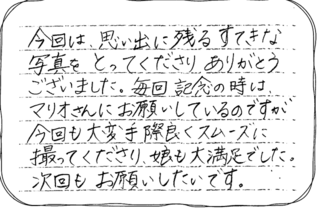 今回は、思い出に残るすてきな
写真を とってくださり ありがとう
ございました。毎回 記念の時は、
マリオさんに お願いしているのですが
今回も大変手際良くスムーズに
撮ってくださり、娘も大満足でした。
次回も お願いしたいです。